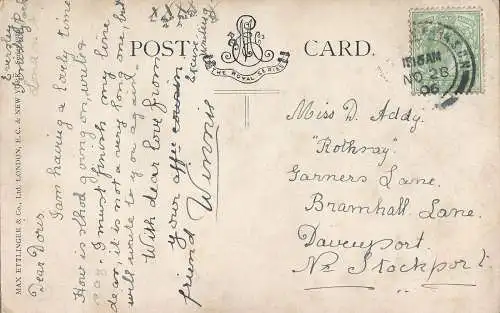 MAX ETTLINGER & Co., Ltd. LONDON, E.C. & NEW YORK
POST CARD.
THE ROYAL SERIES
Eversley
London
Dear Doris,
I am having a lovely time
How is school going on, write
I must finish my line
dear, it is not a very long one, but
will write to you again.
With dear love from
your affec cousin
friend Winnie
Excuse
writing
1215AM
NO 28
06
Miss D. Addy.
"Rothsay"
Garners Lane,
Bramhall Lane.
Davenport.
Nr Stockport.